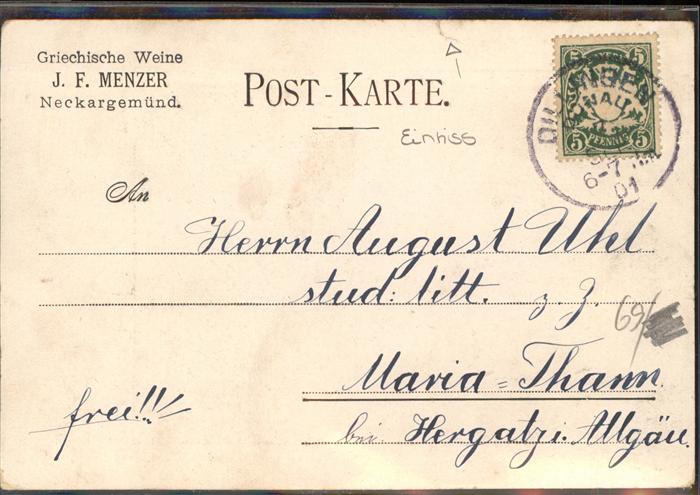 Griechische Weine
J. F. MENZER
Neckargemünd.
POST-KARTE.
Einriss
5 5
5 PFENNIG 5
DILLINGEN
DONAU
6-7
01
An
Herrn August Uhl
stud: litt. z. Z.
69/
Maria=Thann.
frei!!!
bei Hergatz i. Allgäu.